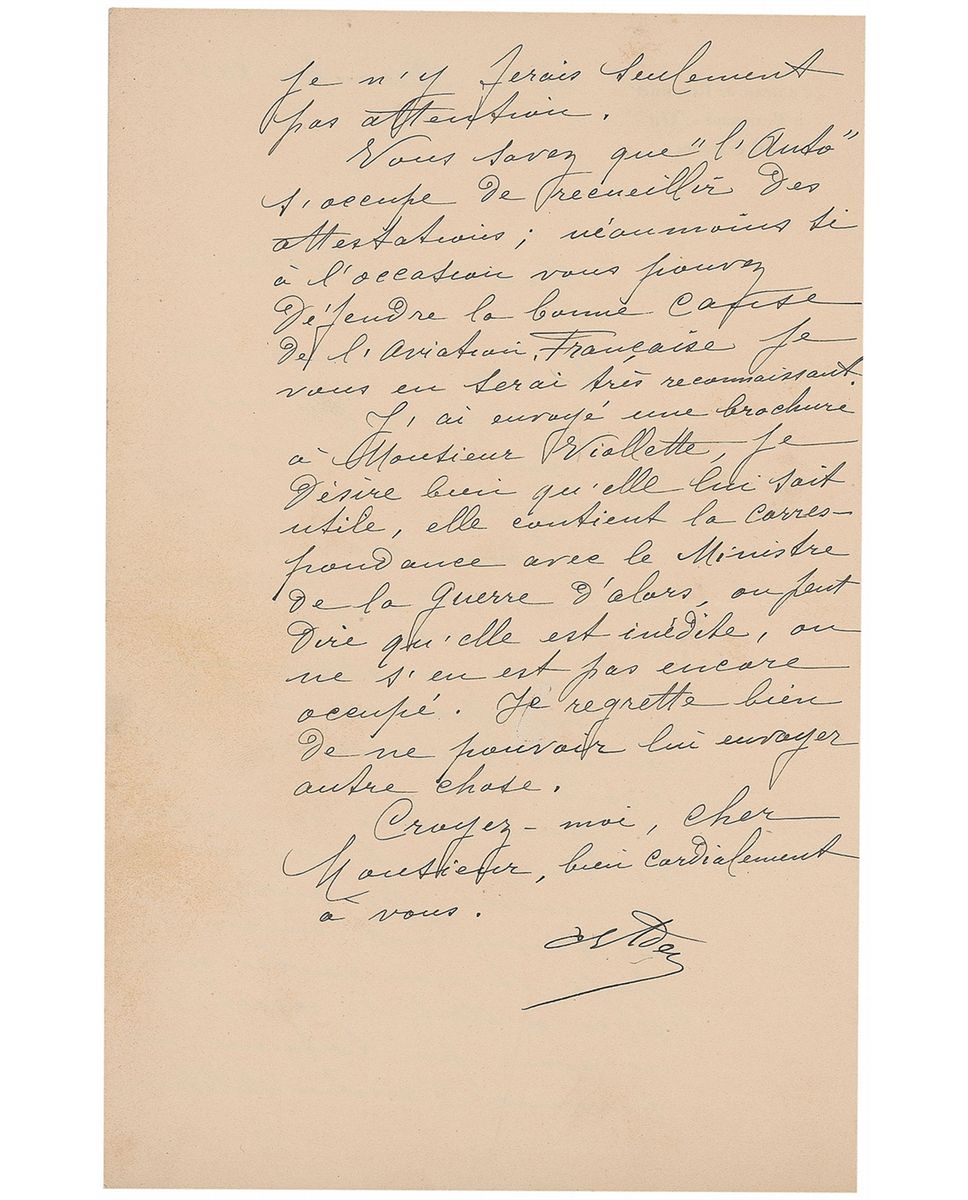 je n'y ferais seulement
pas attention.
Vous savez que "l'Auto"
s'occupe de recueillir des
attestations; néanmoins si
à l'occation vous pouvez
défendre la bonne cause
de l'Aviation Française je
vous en serai très reconnaissant.
J'ai envoyé une brochure
à Monsieur Viollette, je
désire bien qu'elle lui soit
utile, elle contient la corres-
pondance avec le Ministre
de la Guerre d'alors, on peut
dire qu'elle est inédite, on
ne s'en est pas encore
occupé. Je regrette bien
de ne pouvoir lui envoyer
autre chose.
Croyez-moi, cher
Monsieur, bien cordialement
à vous.
Ader